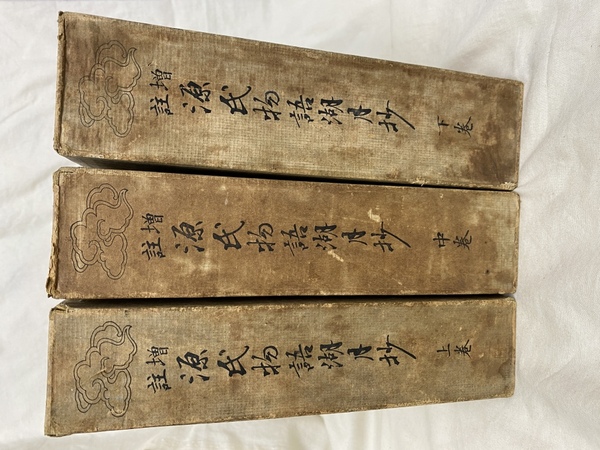 増註 源氏物語湖月抄 下巻
増註 源氏物語湖月抄 中巻
増註 源氏物語湖月抄 上巻